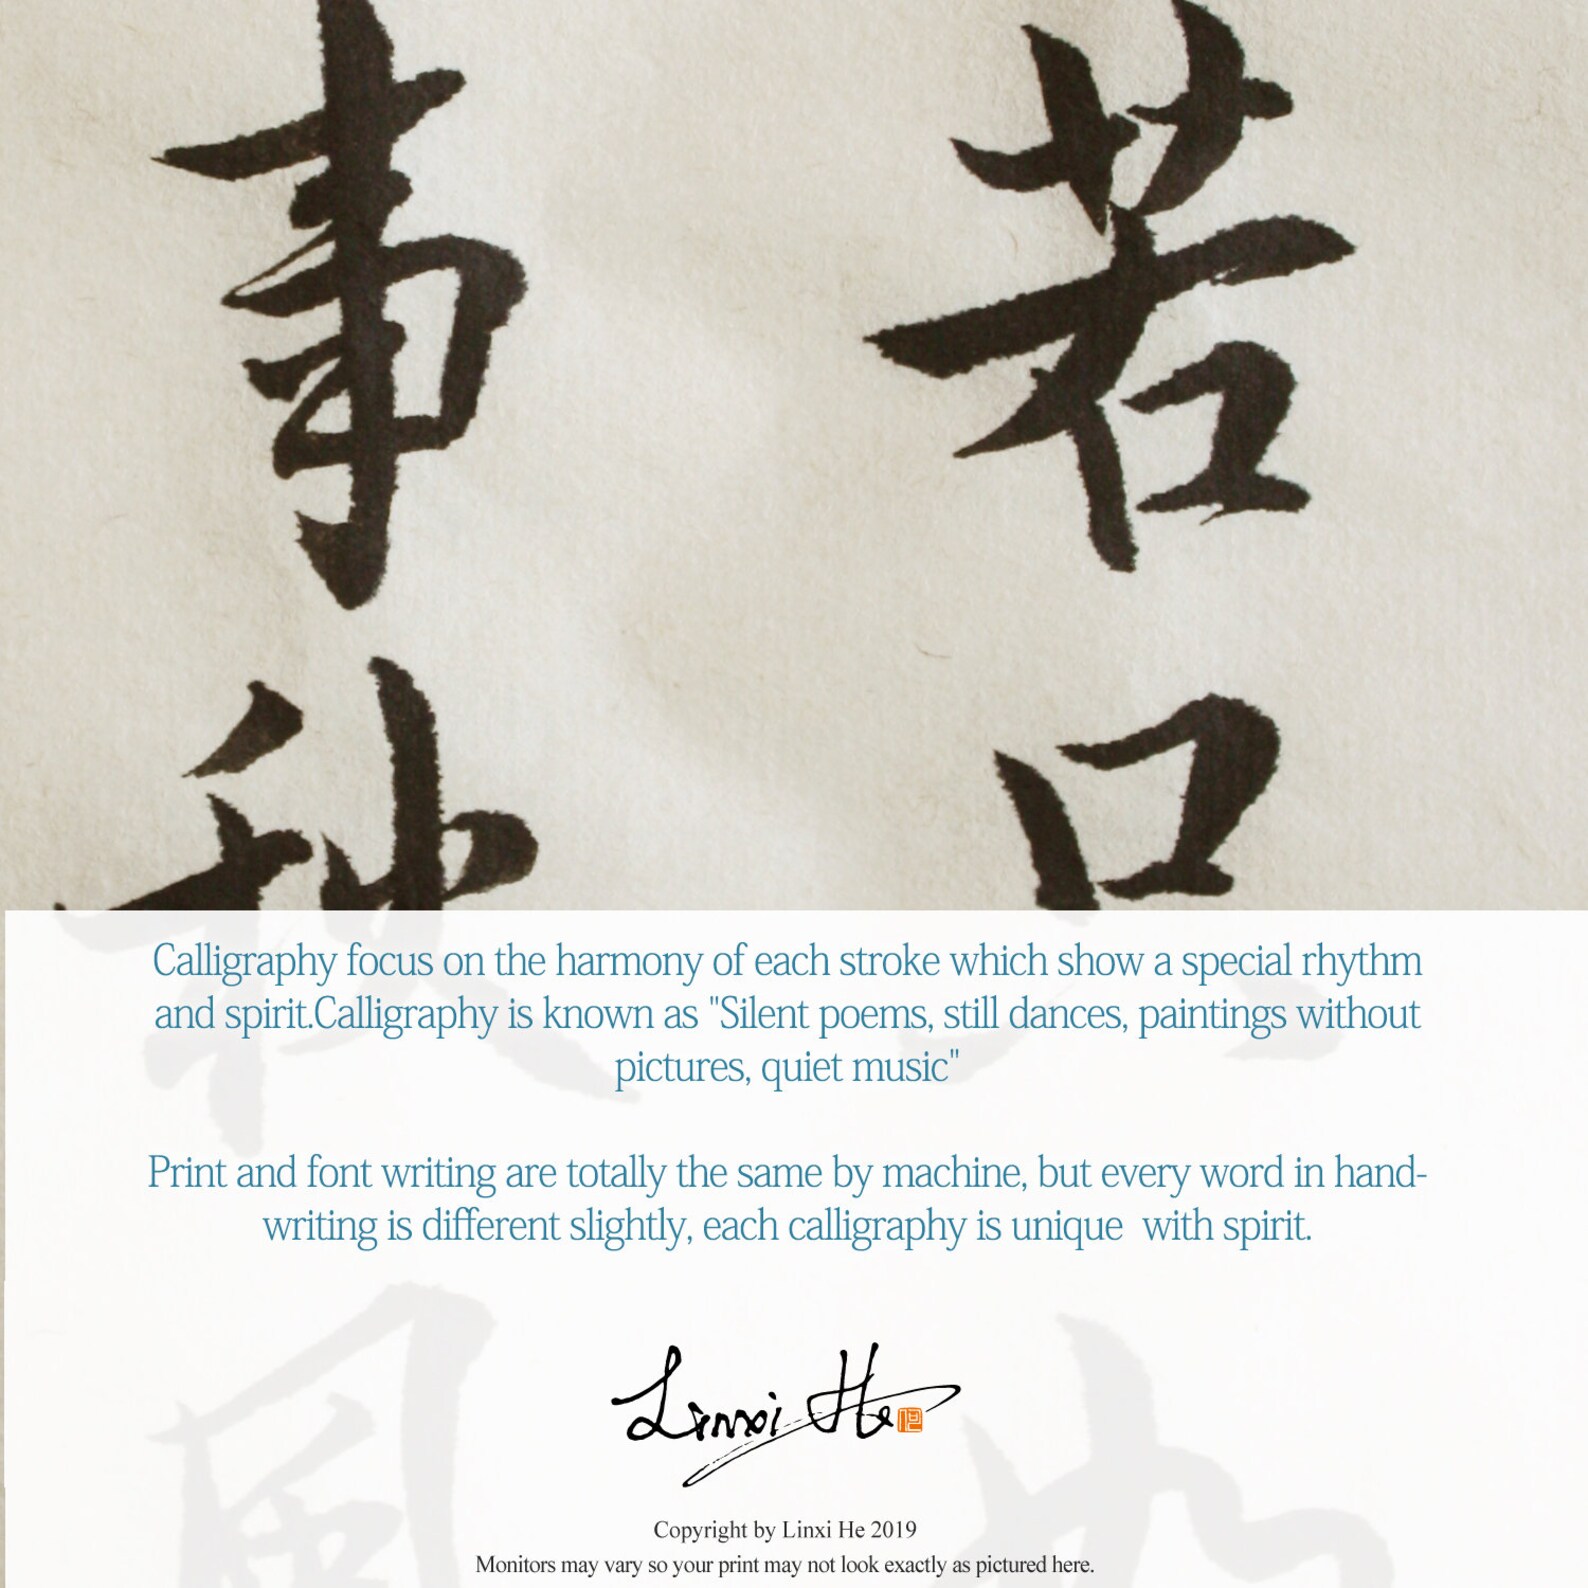 若只如
事秋風
Calligraphy focus on the harmony of each stroke which show a special rhythm
and spirit.Calligraphy is known as "Silent poems, still dances, paintings without
pictures, quiet music"
Print and font writing are totally the same by machine, but every word in hand-
writing is different slightly, each calligraphy is unique  with spirit.
Linxi He
Copyright by Linxi He 2019
Monitors may vary so your print may not look exactly as pictured here.